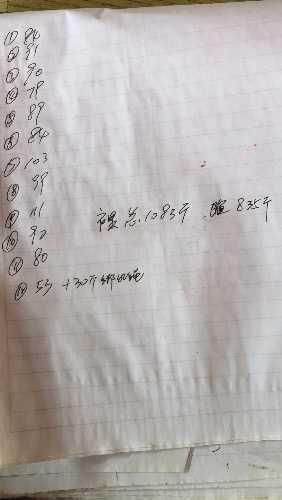 ① 84
② 91
③ 90
④ 78
⑤ 89
⑥ 84
⑦ 103
⑧ 99
⑨ 111
⑩ 92
⑪ 80
总1083斤 835斤
⑫ 53 +30斤